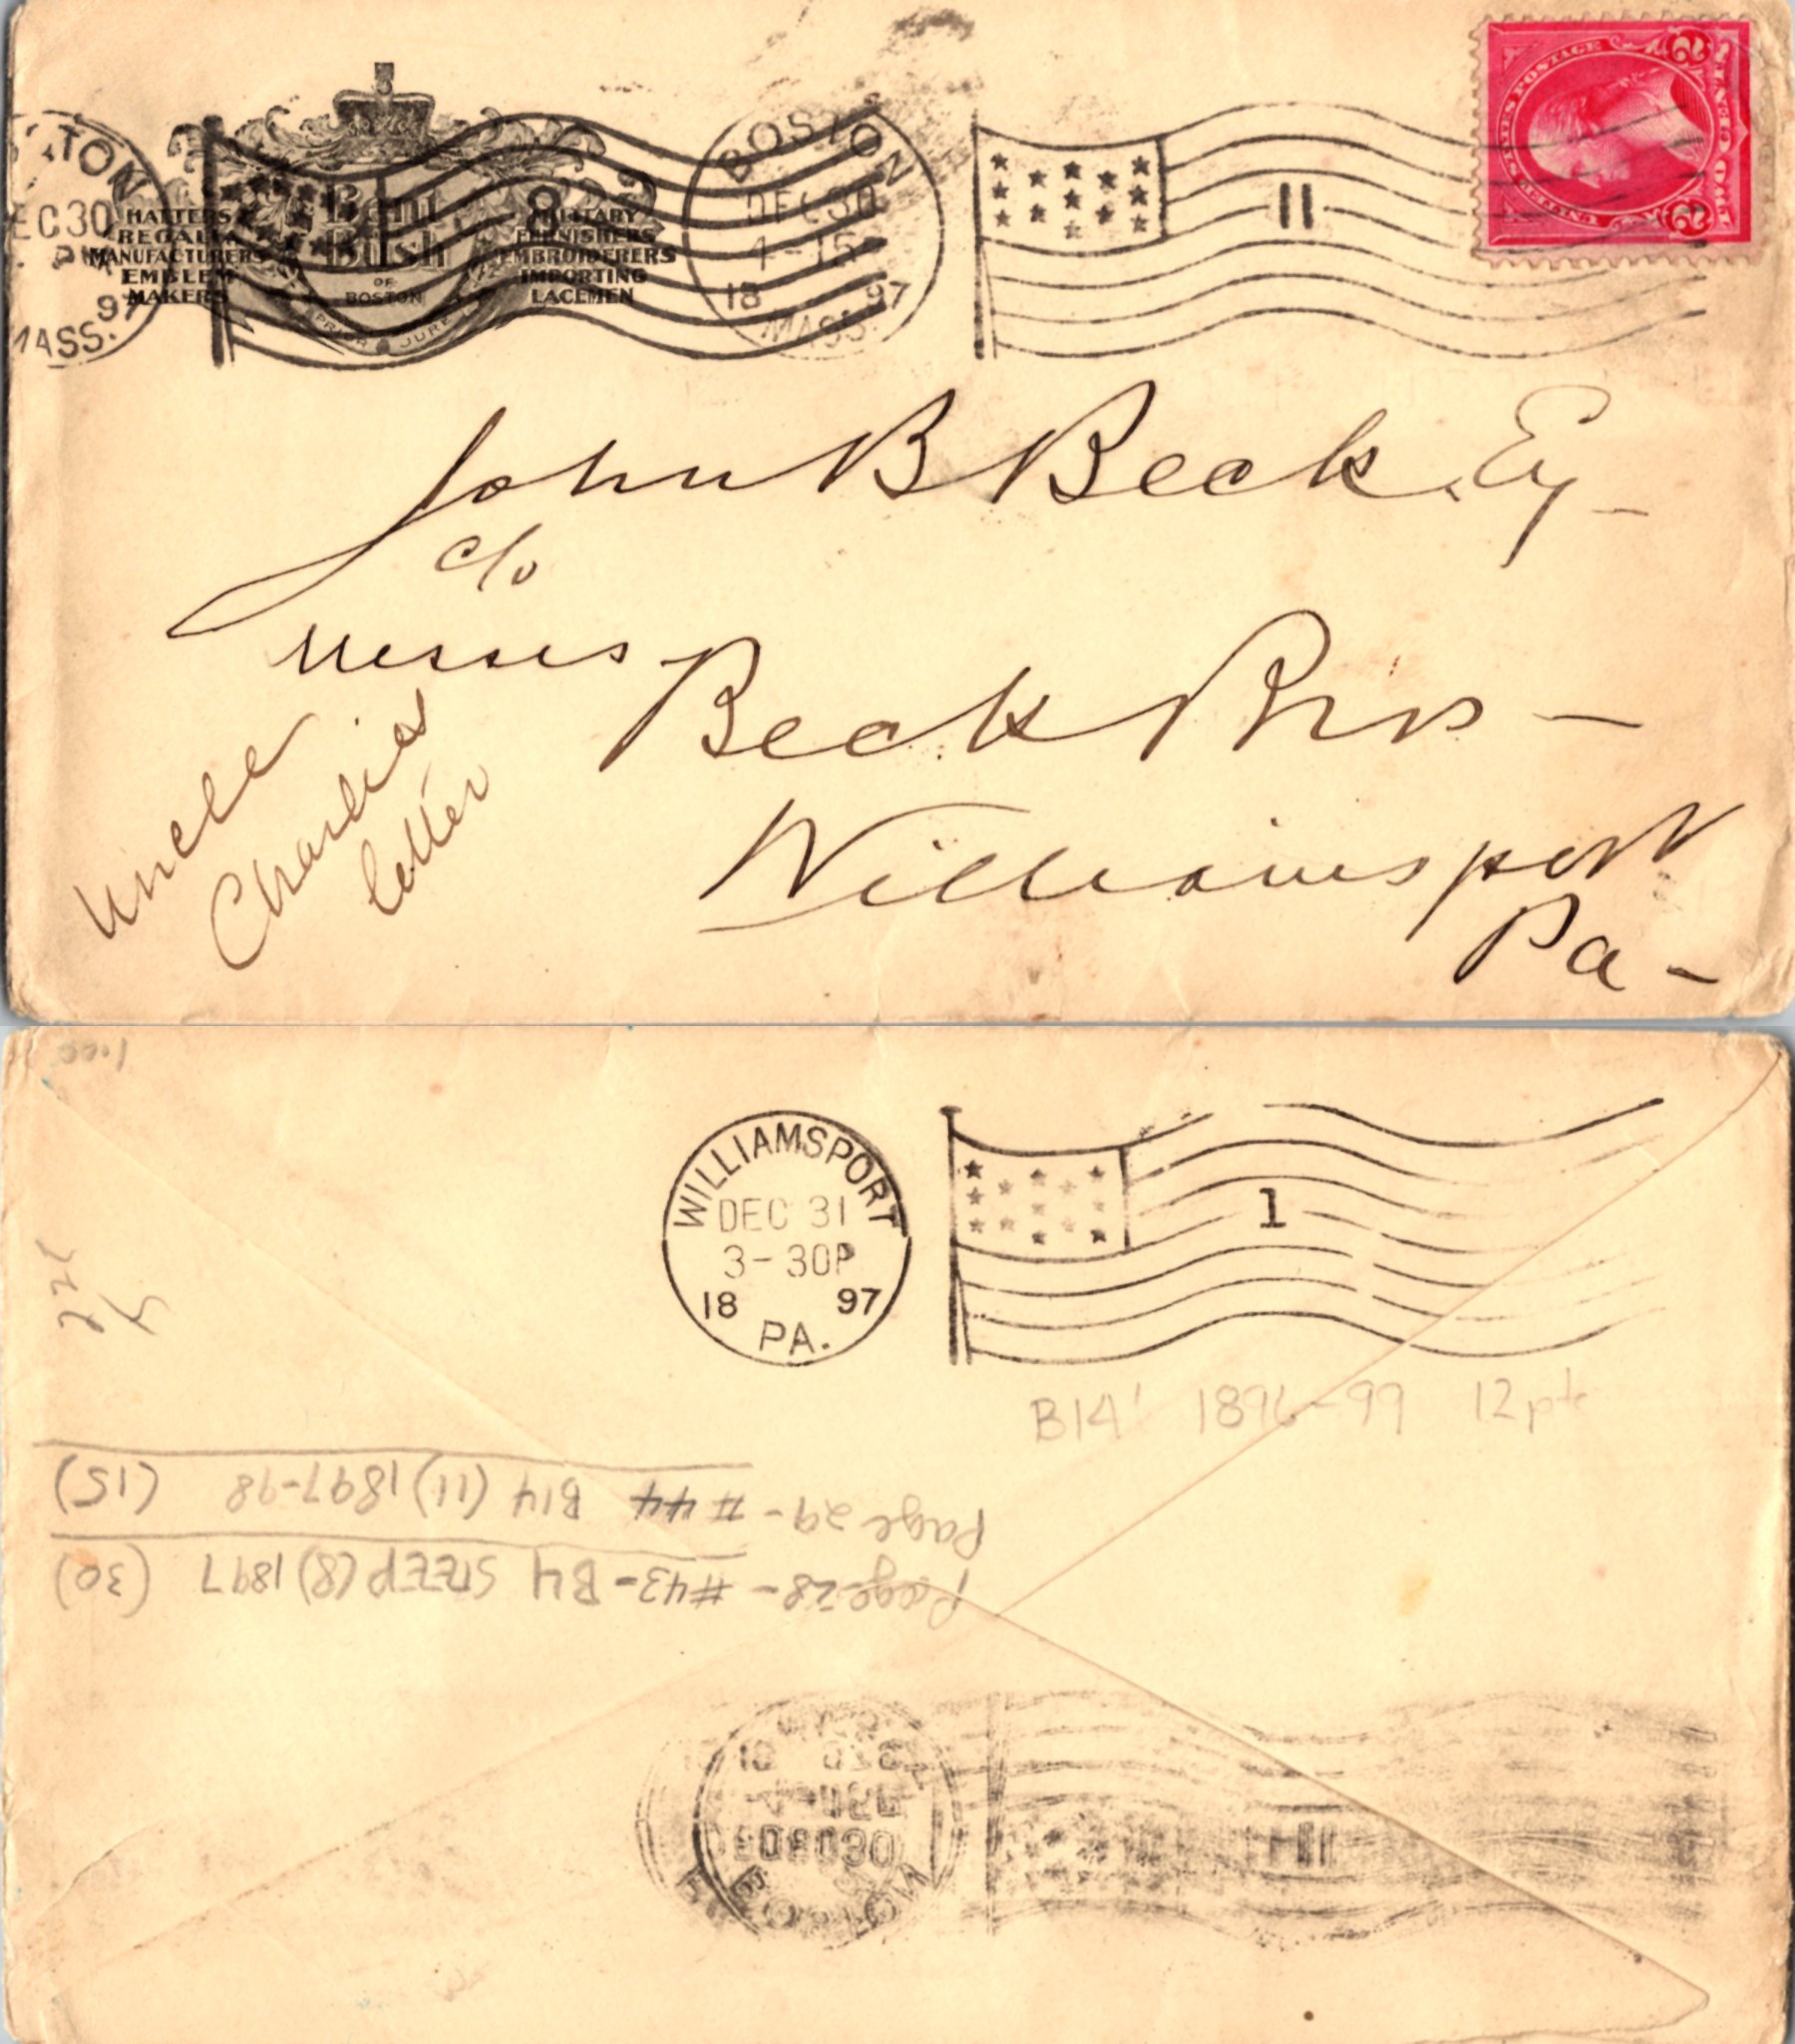 BOSTON
DEC 30
4-15P
18 97
MASS.
11
TON
EC 30
97
MASS.
8
HATTERS
REGALIA
MANUFACTURERS
EMBLEM
MAKERS
Bent
&
Bush
OF
BOSTON
MILITARY
FURNISHERS
EMBROIDERERS
IMPORTING
LACEMEN
UNITED STATES POSTAGE
2 2
John B Beck Esq -
c/o
Messrs Beck Bros -
Williamsport
Pa -
Uncle
Charlies
letter
1.00
WILLIAMSPORT
DEC 31
3-30P
18 97
PA.
1
B14 1896-99 12 pts
Page 28 - #43 - B4 STEEP (8) 1897 (30)
Page 29 - #44 B14 (11) 1897-98 (15)